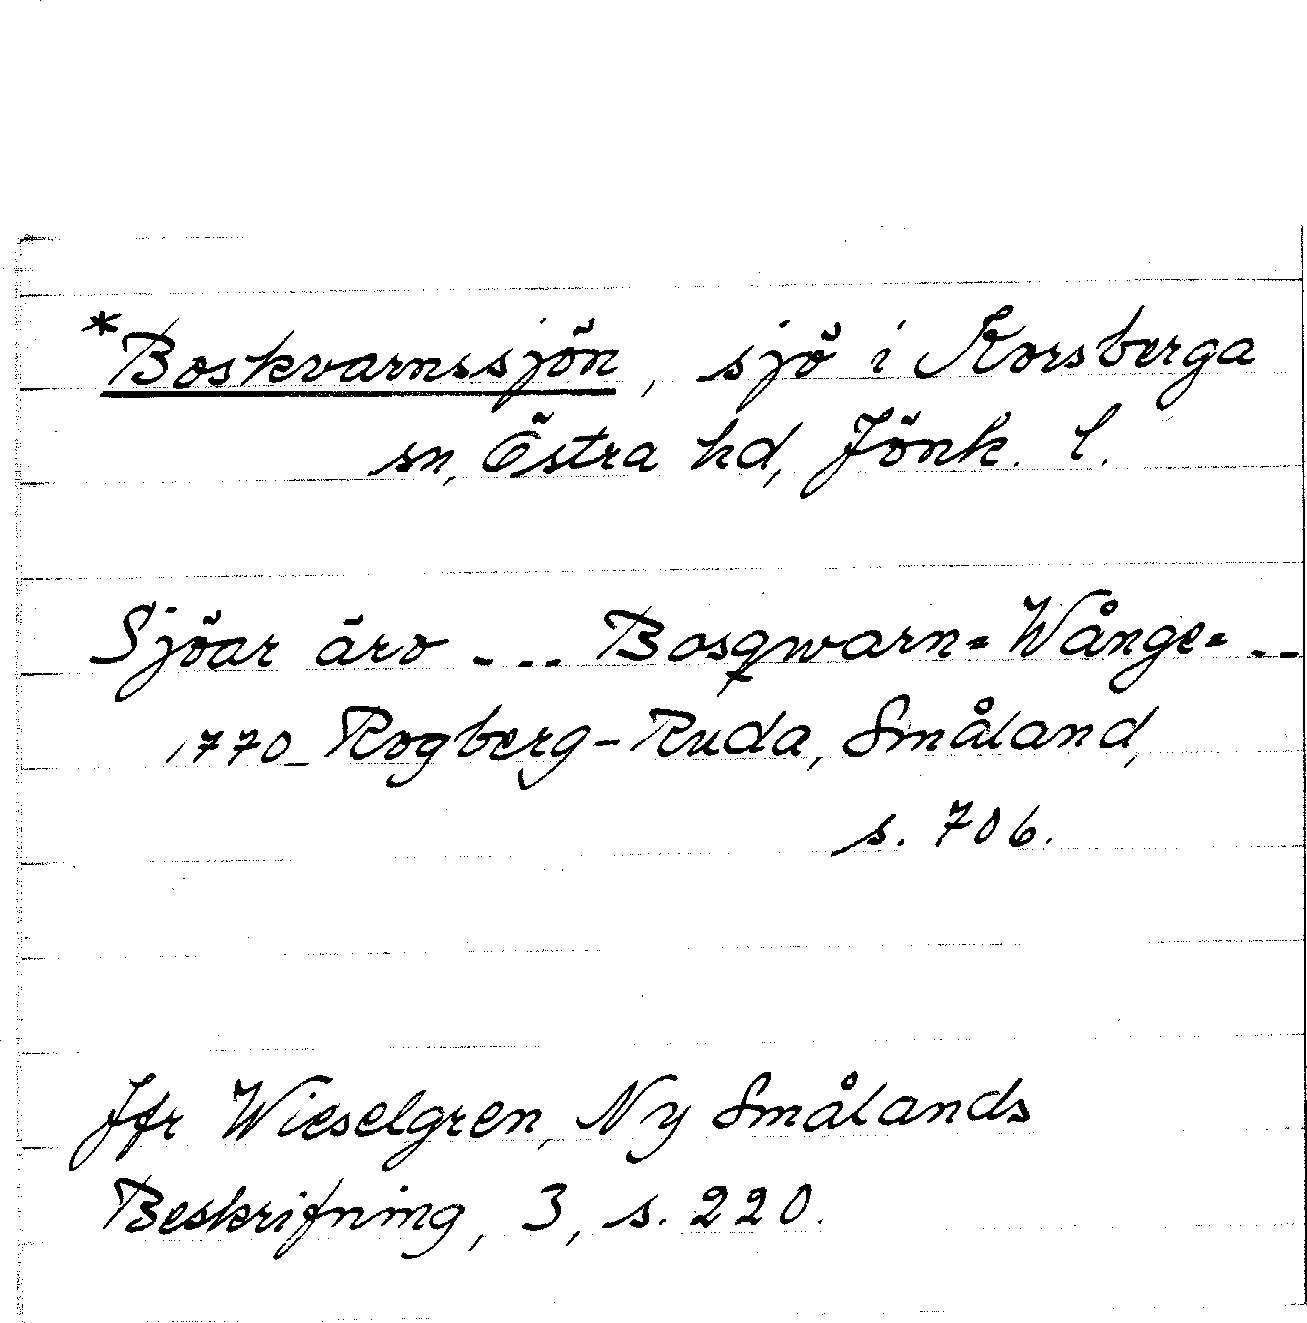 *Boskvarnssjön, sjö i Korsberga
sn, Östra hd, Jönk. l.
Sjöar äro --- Bosqwarn= Wånge= --
1770_ Rogberg-Ruda, Småland,
s. 706.
Jfr Wieselgren, Ny Smålands
Beskrifning, 3, s. 220.